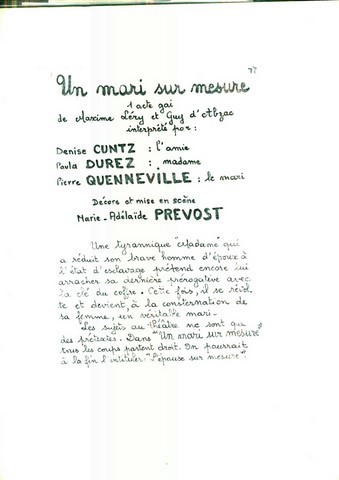 Un mari sur mesure
1 acte gai
de Maxime Léry et Guy d'Abzac
interprété par :
Denise CUNTZ : l'amie
Paula DUREZ : madame
Pierre QUENNEVILLE : le mari
Décors et mise en scène
Marie-Adélaïde PREVOST
Une tyrannique "crfadame" qui
a réduit son brave homme d'époux à
l'état d'esclavage prétend encore lui
arracher sa dernière prérogative avec
la clé du coffre. Cette fois, il se révol
te et devient, à la consternation de
sa femme, un véritable mari.
Les sujets au théâtre ne sont que
des prétextes. Dans "Un mari sur mesure"
tous les coups partent droit. On pourrait
à la fin l'intituler "L'épouse sur mesure".